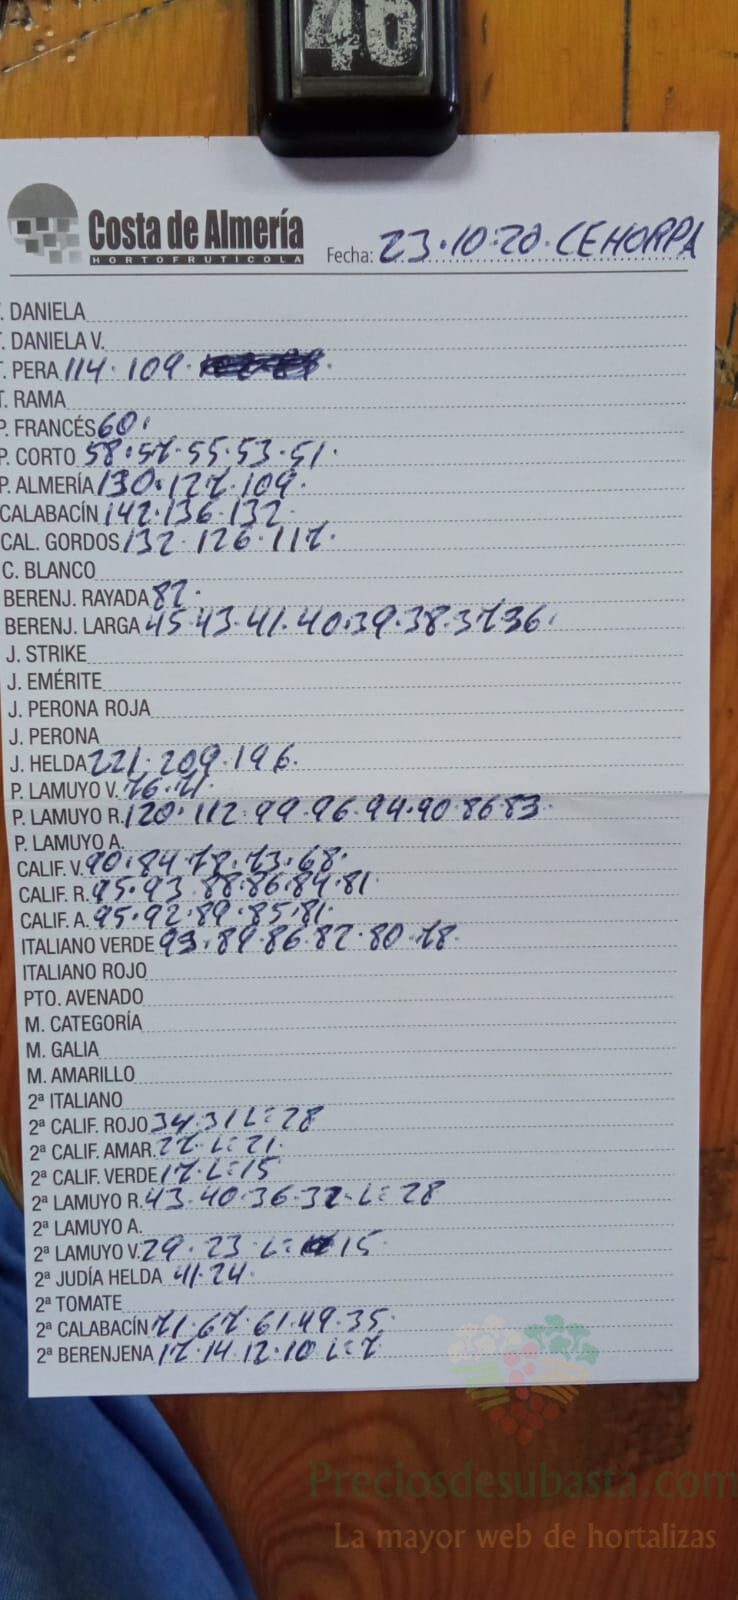 46
Costa de Almería
HORTOFRUTICOLA
Fecha: 23.10.20. CEHORPA
T. DANIELA
T. DANIELA V.
T. PERA 114. 109.
T. RAMA
P. FRANCÉS 60.
P. CORTO 58.57.55.53.51.
P. ALMERÍA 130.127.109.
CALABACÍN 142.136.132.
CAL. GORDOS 132.126.117.
C. BLANCO
BERENJ. RAYADA 82.
BERENJ. LARGA 45.43.41.40.39.38.37.36.
J. STRIKE
J. EMÉRITE
J. PERONA ROJA
J. PERONA
J. HELDA 221.209.196.
P. LAMUYO V. 76.71.
P. LAMUYO R. 120.112.99.96.94.90.86.83.
P. LAMUYO A.
CALIF. V. 90.84.78.73.68.
CALIF. R. 95.93.88.86.84.81.
CALIF. A. 95.92.89.85.81.
ITALIANO VERDE 93.89.86.82.80.78.
ITALIANO ROJO
PTO. AVENADO
M. CATEGORÍA
M. GALIA
M. AMARILLO
2ª ITALIANO
2ª CALIF. ROJO 34.31 L=28
2ª CALIF. AMAR. 27. L=21.
2ª CALIF. VERDE 17. L=15
2ª LAMUYO R. 43.40.36.32. L=28
2ª LAMUYO A.
2ª LAMUYO V. 29.23. L= 15.
2ª JUDÍA HELDA 41.24.
2ª TOMATE
2ª CALABACÍN 71.67.61.49.35.
2ª BERENJENA 17.14.12.10 L=7
Preciosdesubasta.com
La mayor web de hortalizas